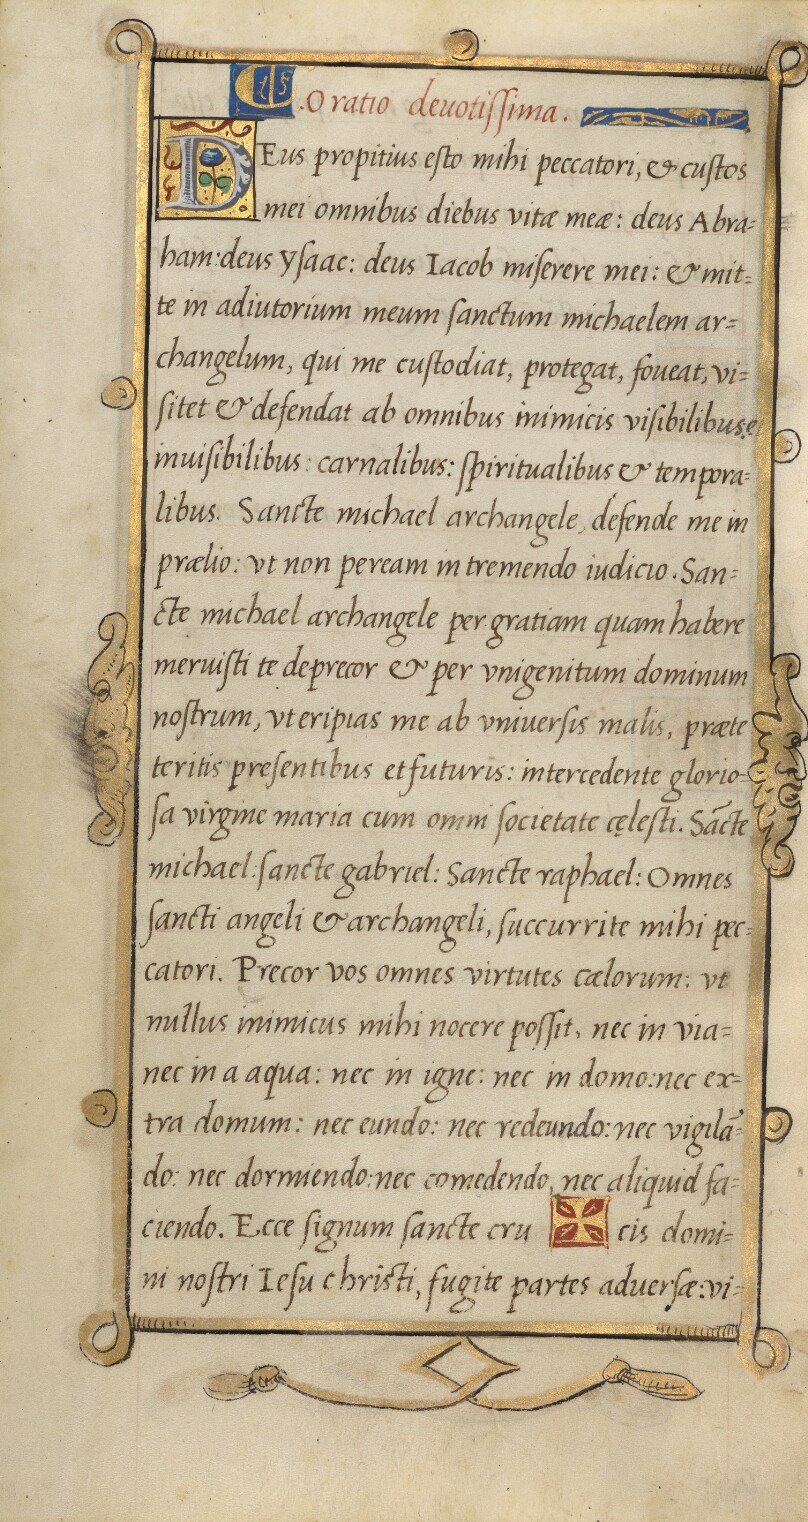 .Oratio deuotissima.
DEus propitius esto mihi peccatori, & custos
mei omnibus diebus vitæ meæ: deus Abra=
ham: deus ysaac: deus Iacob miserere mei: & mit=
te in adiutorium meum sanctum michaelem ar=
changelum, qui me custodiat, protegat, foueat, vi=
sitet & defendat ab omnibus inimicis visibilibus e
inuisibilibus: carnalibus: spiritualibus & tempora=
libus. Sancte michael archangele, defende me in
prælio: vt non peream in tremendo iudicio. San=
cte michael archangele per gratiam quam habere
meruisti te deprecor & per vnigenitum dominum
nostrum, vt eripias me ab vniuersis malis, præte
teritis presentibus et futuris: intercedente glorio=
sa virgine maria cum omni societate cęlesti. Sācte
michael: sancte gabriel: Sancte raphael: Omnes
sancti angeli & archangeli, succurrite mihi pec=
catori. Precor vos omnes virtutes cælorum: vt
nullus inimicus mihi nocere possit, nec in via=
nec in a aqua: nec in igne: nec in domo: nec ex=
tra domum: nec eundo: nec redeundo: nec vigilā=
do: nec dormiendo: nec comedendo, nec aliquid fa=
ciendo. Ecce signum sancte cru ✠ cis domi=
ni nostri Iesu christi, fugite partes aduersæ: vi=